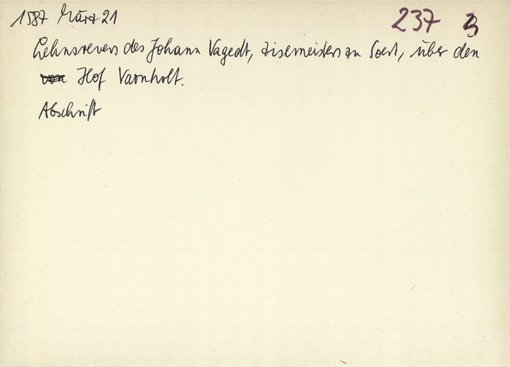 1587 März 21 237 3
Lehnsrevers des Johann Vagedt, zisemeisters zu Soest, über den
Hof Varnholt.
Abschrift